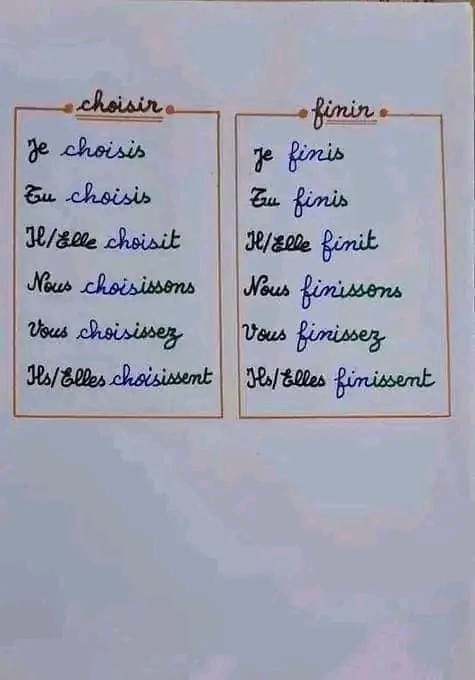 choisir
Je choisis
Tu choisis
Il/Elle choisit
Nous choisissons
Vous choisissez
Ils/Elles choisissent
finir
Je finis
Tu finis
Il/Elle finit
Nous finissons
Vous finissez
Ils/Elles finissent